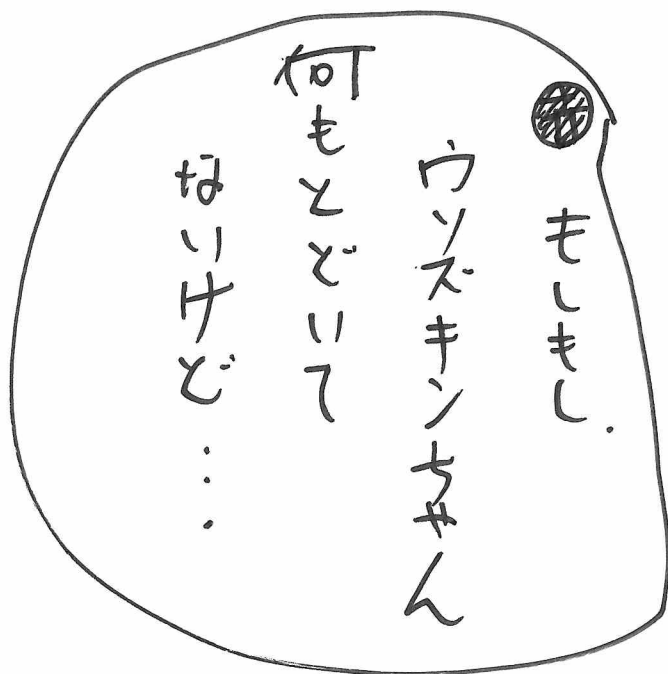 もしもし.
ウソズキンちゃん
何もとどいて
ないけど…